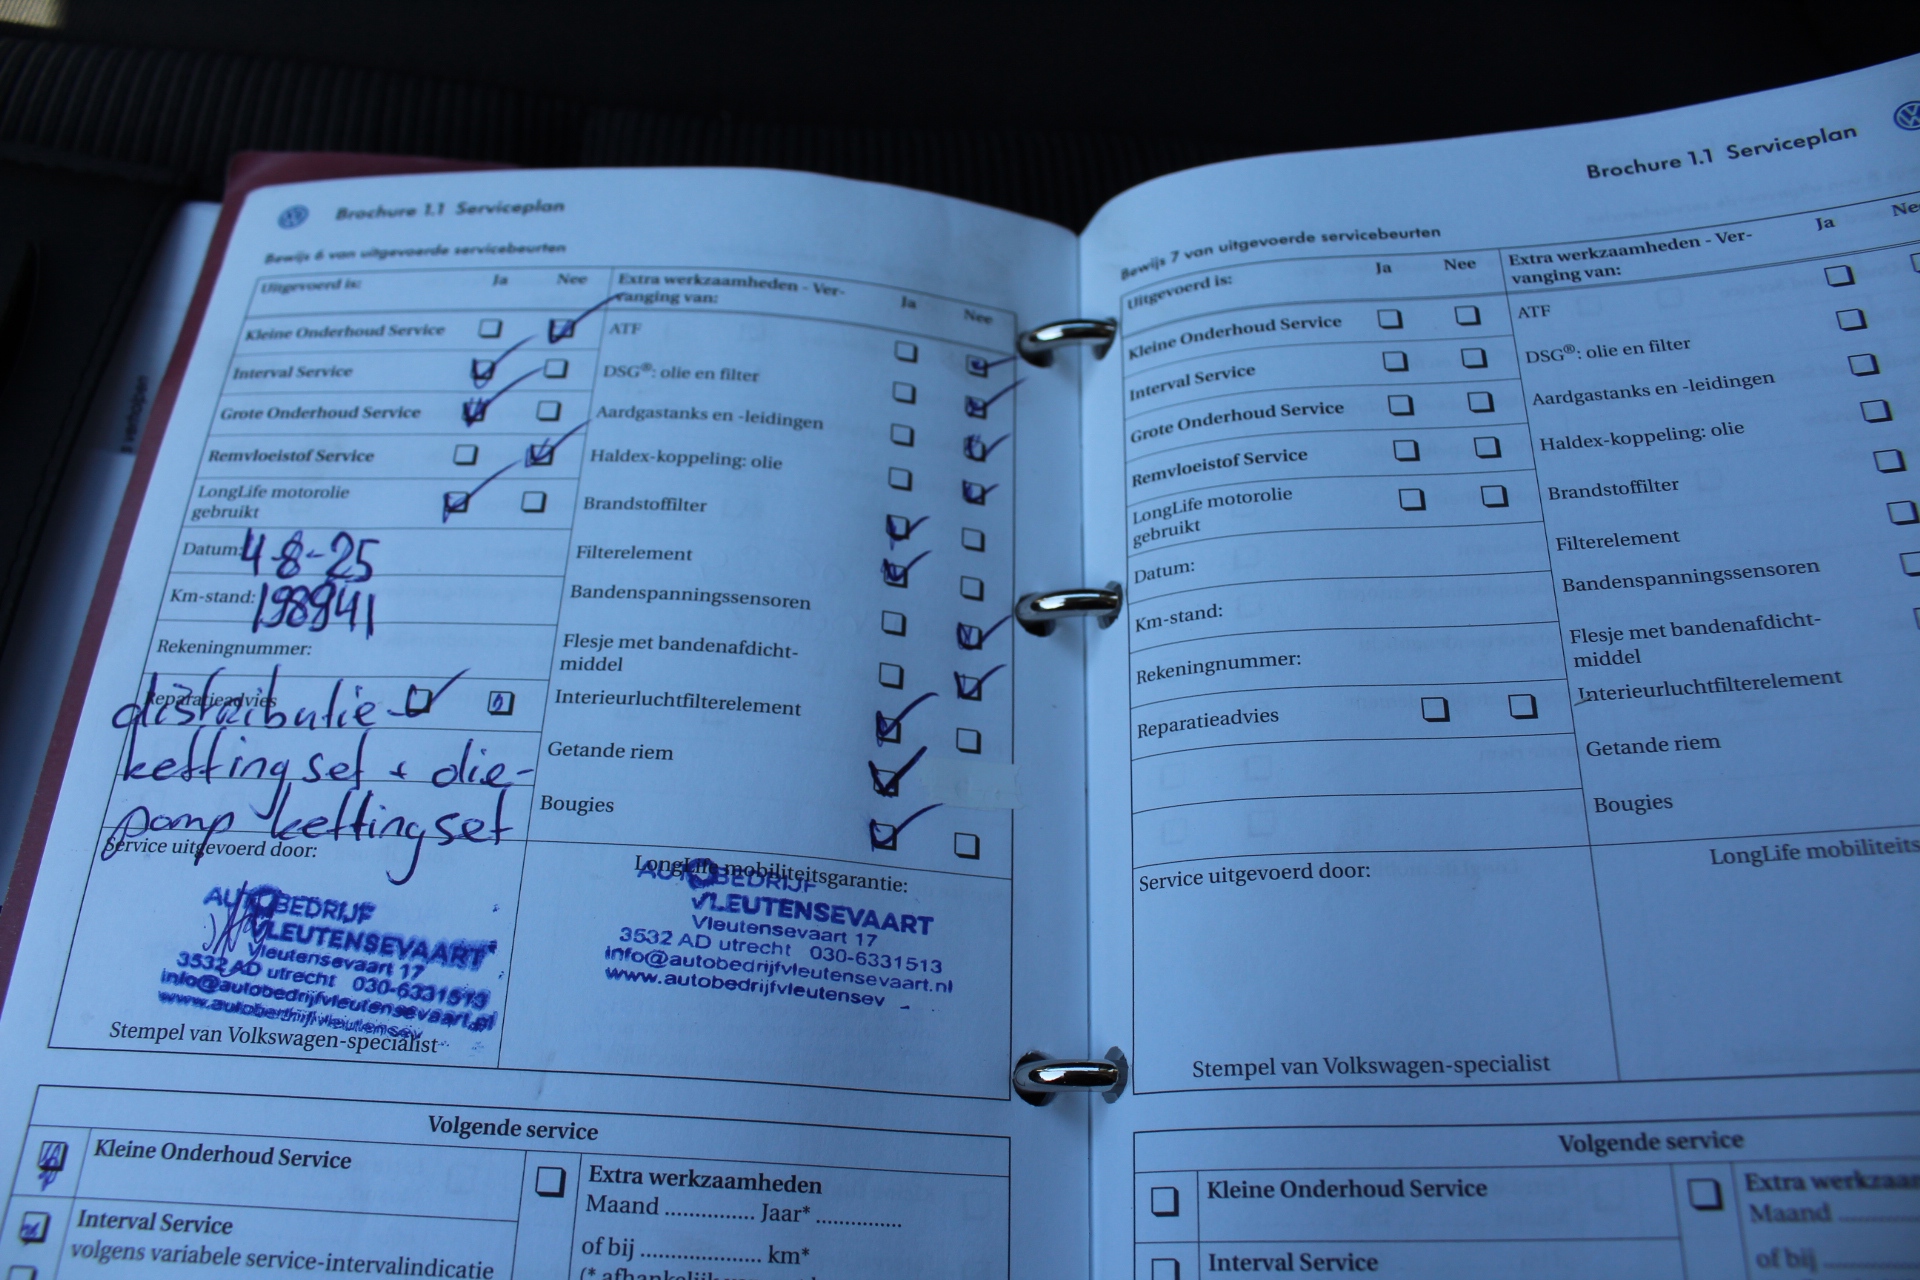 Brochure 1.1 Serviceplan
Bewijs 6 van uitgevoerde servicebeurten
Uitgevoerd is: Ja Nee
Kleine Onderhoud Service
Interval Service
Grote Onderhoud Service
Remvloeistof Service
LongLife motorolie
gebruikt
Datum: 4-8-25
Km-stand: 198941
Rekeningnummer:
Reparatieadvies
distributie-
ketting set + olie-
pomp kettingset
Extra werkzaamheden - Ver-
vanging van: Ja Nee
ATF
DSG®: olie en filter
Aardgastanks en -leidingen
Haldex-koppeling: olie
Brandstoffilter
Filterelement
Bandenspanningssensoren
Flesje met bandenafdicht-
middel
Interieurluchtfilterelement
Getande riem
Bougies
Service uitgevoerd door:
AUTOBEDRIJF
VLEUTENSEVAART
Vleutensevaart 17
3532 AD utrecht 030-6331513
info@autobedrijfvleutensevaart.nl
Stempel van Volkswagen-specialist
LongLife mobiliteitsgarantie:
AUTOBEDRIJF
VLEUTENSEVAART
Vleutensevaart 17
3532 AD utrecht 030-6331513
info@autobedrijfvleutensevaart.nl
www.autobedrijfvleutensev
Volgende service
Kleine Onderhoud Service
Interval Service
volgens variabele service-intervalindicatie
Extra werkzaamheden
Maand .............. Jaar* ..............
of bij .................... km*
Brochure 1.1 Serviceplan
Bewijs 7 van uitgevoerde servicebeurten
Uitgevoerd is: Ja Nee
Kleine Onderhoud Service
Interval Service
Grote Onderhoud Service
Remvloeistof Service
LongLife motorolie
gebruikt
Datum:
Km-stand:
Rekeningnummer:
Reparatieadvies
Extra werkzaamheden - Ver-
vanging van: Ja Ne
ATF
DSG®: olie en filter
Aardgastanks en -leidingen
Haldex-koppeling: olie
Brandstoffilter
Filterelement
Bandenspanningssensoren
Flesje met bandenafdicht-
middel
Interieurluchtfilterelement
Getande riem
Bougies
Service uitgevoerd door:
Stempel van Volkswagen-specialist
LongLife mobiliteits
Volgende service
Kleine Onderhoud Service
Interval Service
Extra werkzaa
Maand
of bij